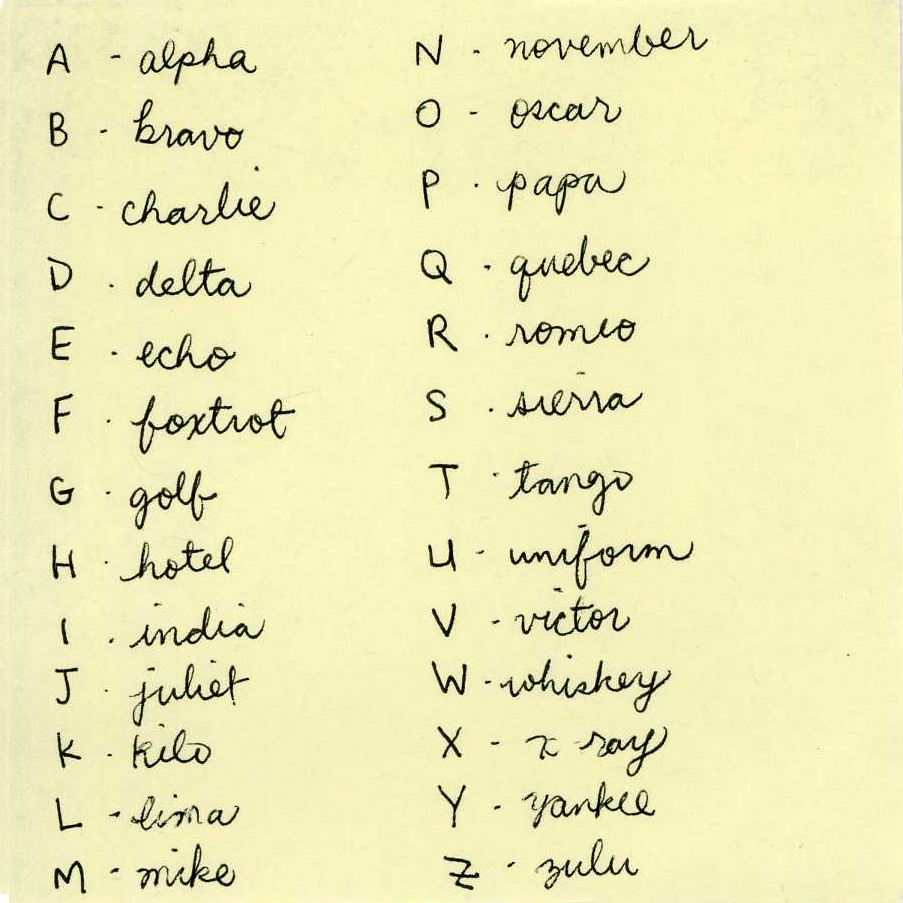 A - alpha
B - bravo
C - charlie
D - delta
E - echo
F - foxtrot
G - golf
H - hotel
I - india
J - juliet
K - kilo
L - lima
M - mike
N - november
O - oscar
P - papa
Q - quebec
R - romeo
S - sierra
T - tango
U - uniform
V - victor
W - whiskey
X - x ray
Y - yankee
Z - zulu